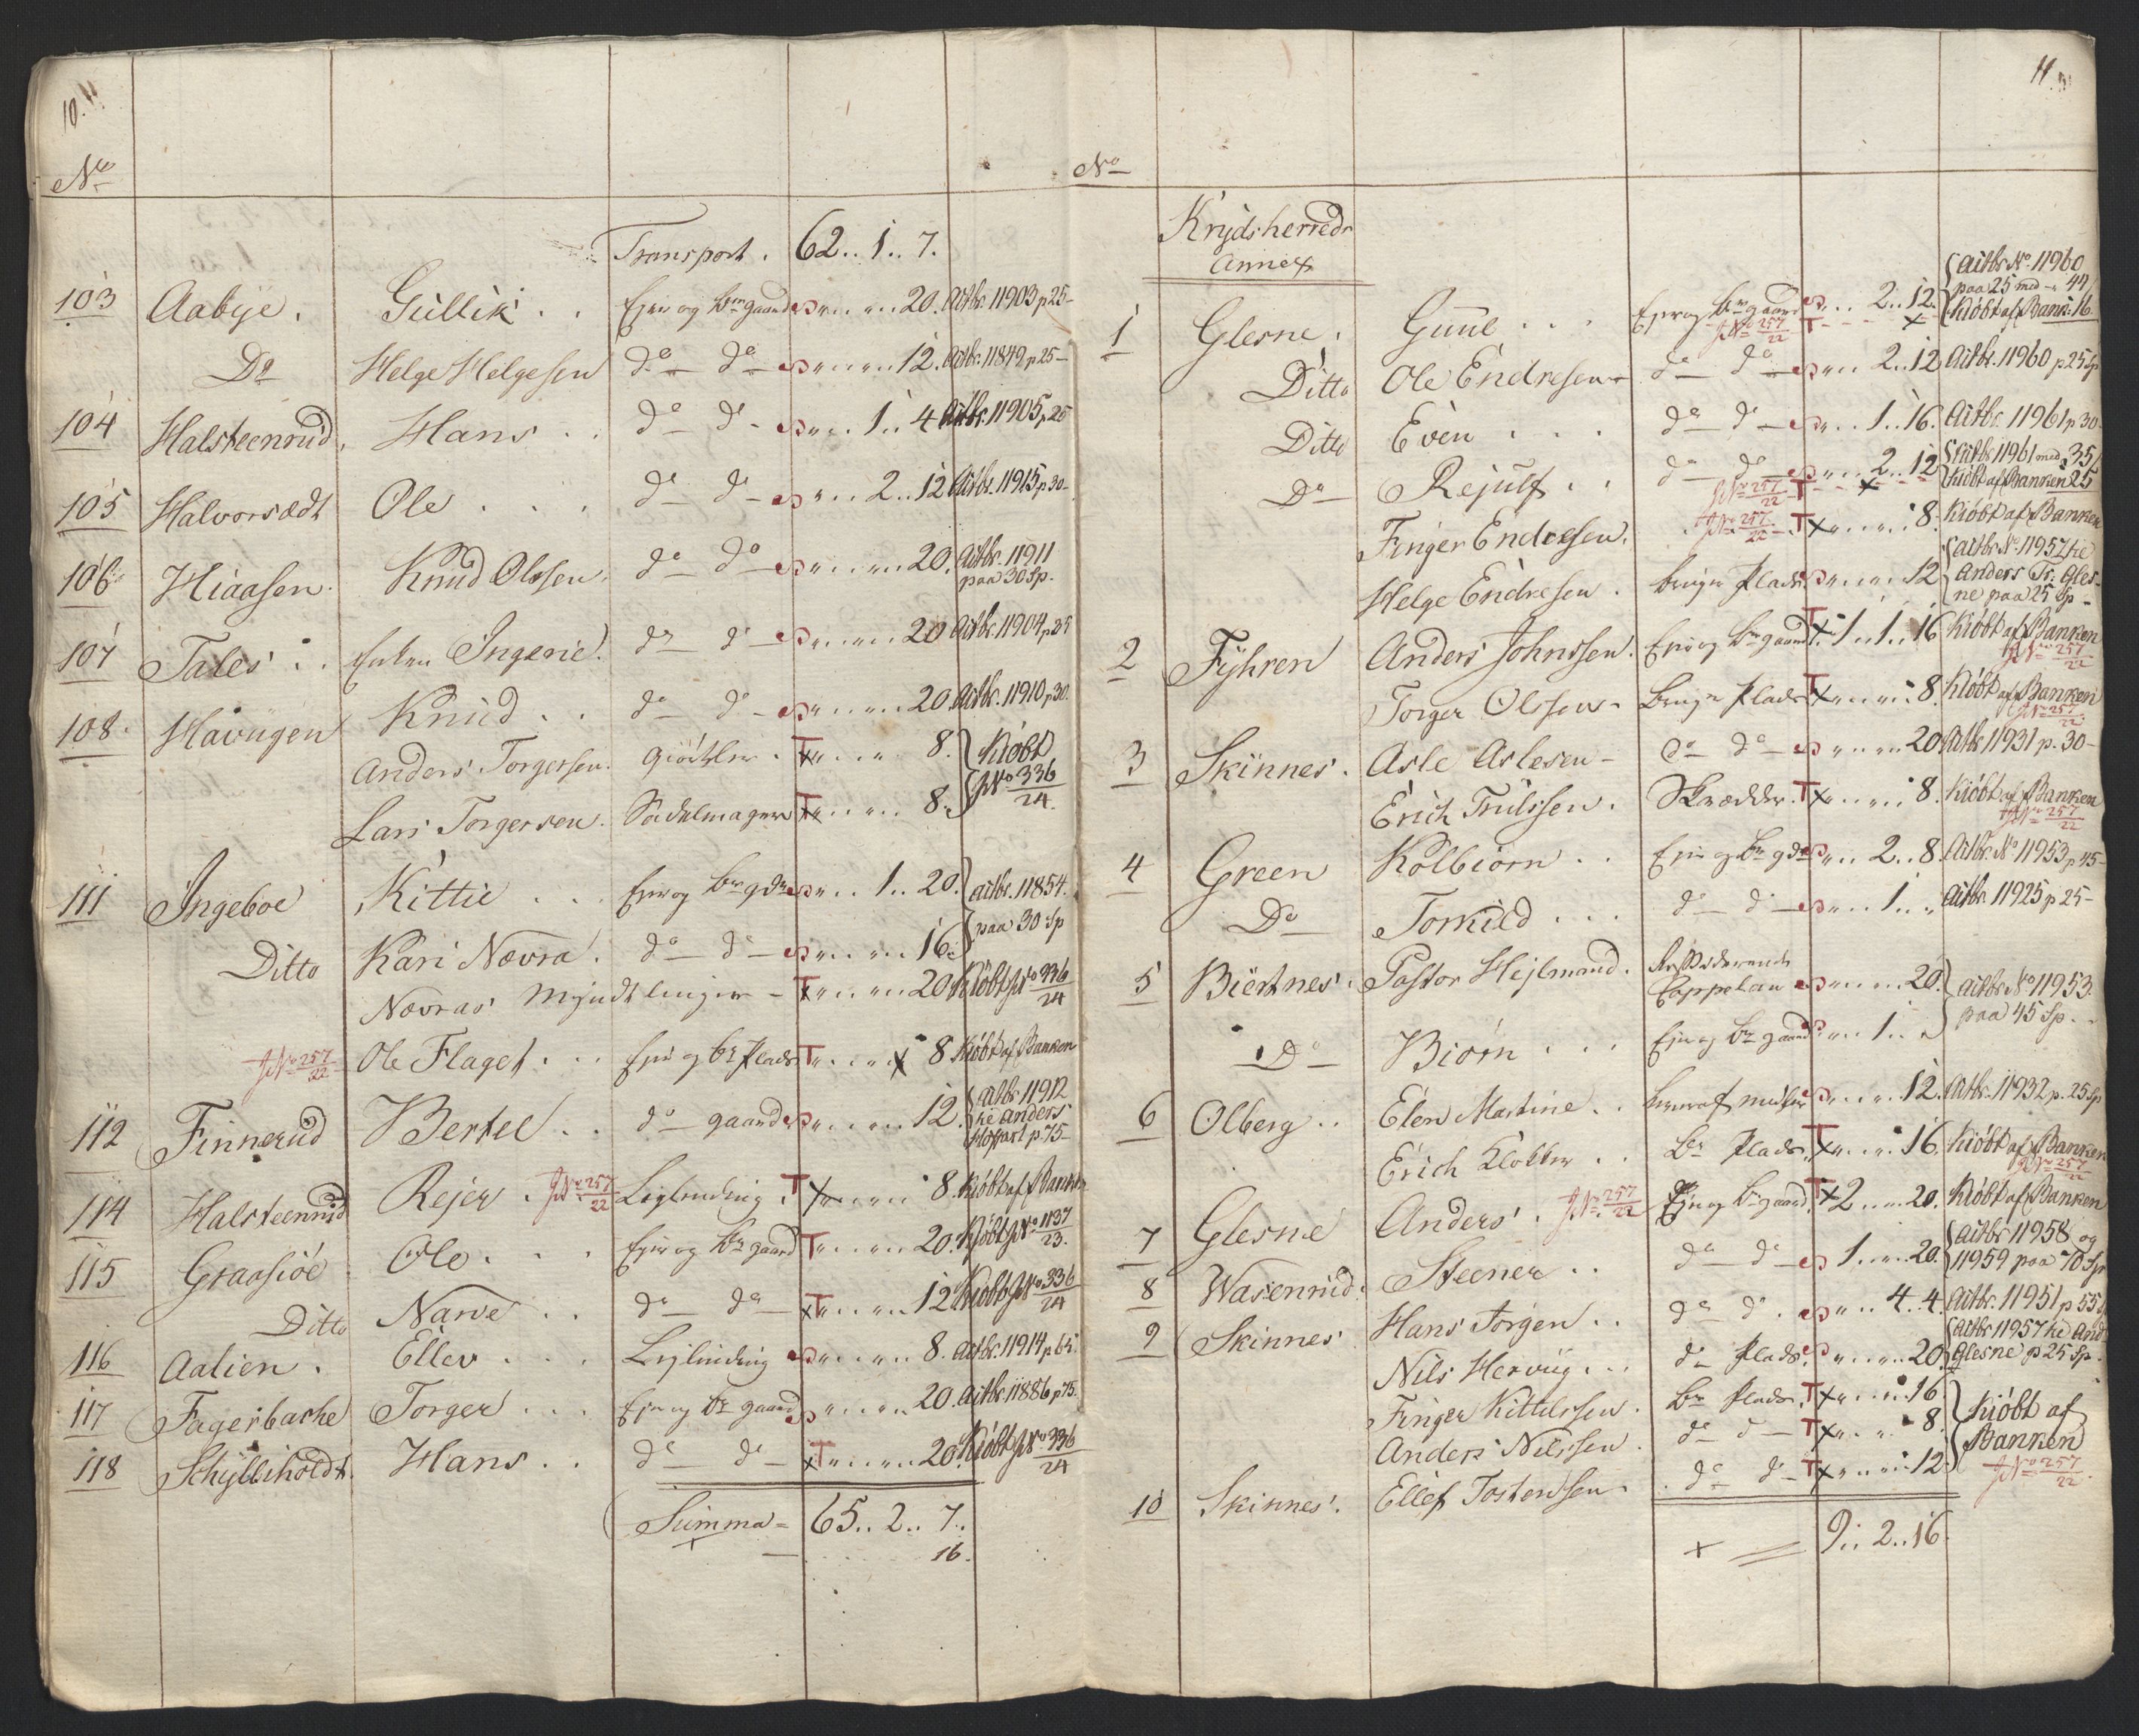 10.
No
Transport . 62 .. 1 .. 7.
103 Aabye . Gullik . . Ejer og br gaard " .. " .. 20. Actbr. 11903 p 25 -
Do Helge Helgesen do do " .. " .. 12. Actbr. 11849 p 25 -
104 Halsteenrud, Hans . . do do - " .. 1 .. 4 Actbr. 11905 p 25
105 Halvorsædt Ole . . . do do - " .. 2 .. 12 Actbr. 11915 p 30 -
106. Hiaasen . Knud Olssen . do do " .. " .. 20. Actbr. 11911
paa 30 Sp.
107 Tales . . Enken Ingerie . do do - " .. " .. 20 Actbr. 11904 p 35
108. Havugen Knud . . do do - " .. " .. 20 Actbr. 11910 p 30.
Anders Torgersen. T " .. " .. 8. } Kiøbt
Lars Torgersen . Sadelmager T " .. " .. 8. } No 336/24.
111 Ingeboe Kittil . . . Ejer og br gd " .. 1 .. 20. } actbr. 11854.
Ditto Kari Nævra . do do - " .. " .. 16. } paa 30 Sp
Nævras Myndtlinger - T " .. " .. 20 Kiøbt No 336/24
No 257/22 Ole Flaget . . . Ejer og br Plads T " .. " .. 8 Kiøbt af Banken
112 Finnerud Bertel . . do gaard " .. " .. 12. { actbr 11912
he Anders
p. 75 -
114 Halsteenrud Rejer . No 257/22 Leylending T " .. " .. 8. Kiøbt af Banken
115 Graasiöe Ole . . . Ejer og br gaard T " .. " .. 20. Kiøbt No 1137/23.
Ditto Narve . . do do - T " .. " .. 12 Kiøbt No 336/24
116 Aalien . Ellev . . . Leylending " .. " .. 8. actbr. 11914 p 65.
117 Fagerbache Torger . . . Ejer og br gaard " .. " .. 20 actbr 11886 p 75.
118 Schyllihöldt. Hans . . do do - T " .. " .. 20. Kiøbt No 336/24
Summa = 65 .. 2 .. 7 ..
16.
11.
No
Krydsherreds
Annex
1 Glesne . Guul . . . Ejer og br gaard " .. 2 .. 12. { Actbr No 11960
paa 25 med - 44
No 257/22 T Kiøbt af Bank: 16.
Ditto Ole Endresen - do do - " .. 2 .. 12 Actbr. 11960 p 25 Sp
Ditto Even . . . do do - " .. 1 .. 16. Actbr. 11961 p 30.
Do Rejulf . . do do - " .. 2 .. 12 { Actbr 11961 med 35
No 257/22 T Kiøbt af Banken 25
Finger Endresen . No 257/22 T " .. " .. 8. Kiøbt af Banken
Helge Endresen . bruger Plads " .. " .. 12 { actbr No 11957 he
Anders Tr: Gles-
ne paa 25 Sp -
2 Fyhren Anders Johnssen . Ejer og br gaard T 1 .. 1 .. 16 Kiøbt af Banken
No 257/22
Torger Olssen - bruger Plads T " .. " .. 8. Kiøbt af Banken
No 257/22
3 Skinnes . Asle Aslesen - do do - " .. " .. 20 Actbr 11931 p. 30 -
Erich Trulssen . Skrædder. T " .. " .. 8. Kiøbt af Banken
No 257/22
4 Green Kolbiörn . . Ejer og br gd " .. 2 .. 8. Actbr. No 11953 p 45 -
Do Torkild . . . do do - " .. 1 .. " Actbr 11925 p 25 -
5 Biertnes . Pastor Hejlmand . Residerende
Cappelan " .. " .. 20. } actbr No 11953.
paa 45 Sp. -
Do Biörn . . . Ejer og br gaard " .. 1 .. "
6 Olberg . . Elen Martine . . " .. " .. 12. Actbr. 11932 p. 25 Sp
Erich Klobber . . br Plads T " .. " .. 16. Kiøbt af Banken
No 257/22
7 Glesne Anders . No 257/22 Ejer og br gaard. T 2 .. " .. 20. Kiøbt af Banken
8 Wasenrud . Steener . . do do 1 .. " .. 20. { Actbr 11958 og
11959 paa 70 Sp
9 Skinnes Hans Jörgen . . do do . " .. 4 .. 4. Actbr. 11951 p 55
Nils Hervug . . do Plads " .. " .. 20 { actbr 11957 he And
Glesne p 25 Sp.
Finger Kittelssen . br Plads T " .. " .. 16. } Kiøbt af
Anders Nilssen . do do - T " .. " .. 8. Banken
10 Skinnes . Ellef Tostenssen . do do - T " .. " .. 12 No 257/22
9 .. 2 .. 16.